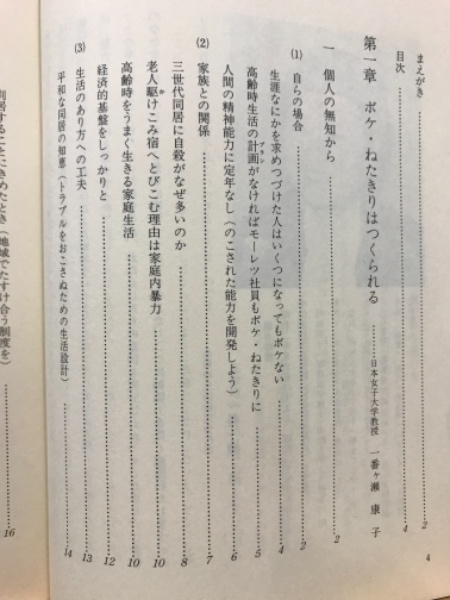 まえがき……2
目次……4
第一章　ボケ・ねたきりはつくられる……日本女子大学教授　一番ヶ瀬　康子
一　個人の無知から……2
(1)　自らの場合……2
生涯なにかを求めつづけた人はいくつになってもボケない……4
高齢時生活の計画（プラン）がなければモーレツ社員もボケ・ねたきりに……5
人間の精神能力に定年なし（のこされた能力を開発しよう）……6
(2)　家族との関係……7
三世代同居に自殺がなぜ多いのか……8
老人駆（か）けこみ宿へとびこむ理由は家庭内暴力……10
高齢時をうまく生きる家庭生活……10
経済的基盤をしっかりと……12
(3)　生活のあり方への工夫……13
平和な同居の知恵（トラブルをおこさぬための生活設計）……14
同居することにきめたとき（地域でたすけ合う制度を）……16
4